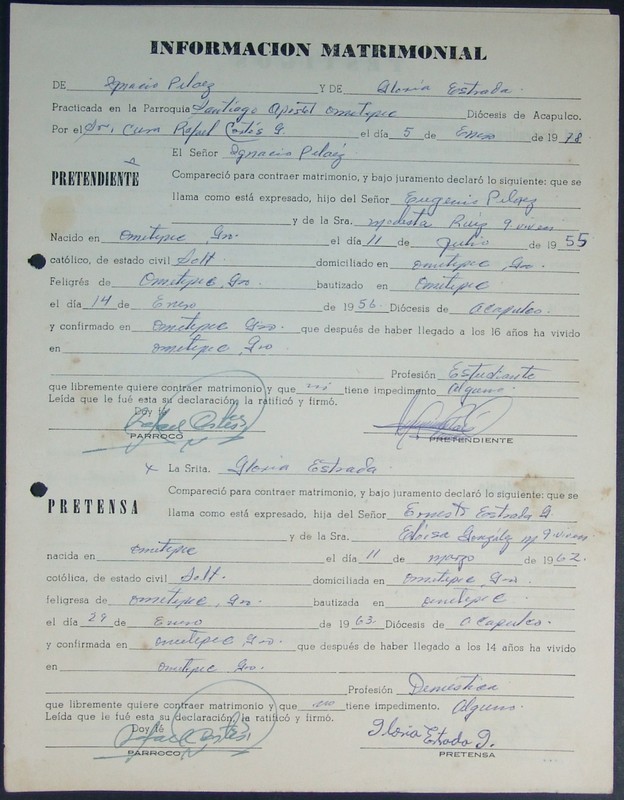 INFORMACION MATRIMONIAL
DE Ignacio Pelaez Y DE Gloria Estrada.
Practicada en la Parroquia Santiago Apóstol Ometepec Diócesis de Acapulco.
Por el Sr. Cura Rafael Cortés G. el día 5 de Enero de 1978
El Señor Ignacio Peláez
PRETENDIENTE
Compareció para contraer matrimonio, y bajo juramento declaró lo siguiente: que se
llama como está expresado, hijo del Señor Eugenio Pelaez
y de la Sra. Modesta Ruiz q. viven
Nacido en Ometepec Gro. el día 11 de Julio de 1955
católico, de estado civil Solt. domiciliado en Ometepec, Gro.
Feligrés de Ometepec, Gro bautizado en Ometepec
el día 14 de Enero de 1956 Diócesis de Acapulco.
y confirmado en Ometepec Gro. que después de haber llegado a los 16 años ha vivido
en Ometepec, Gro
Profesión Estudiante
que libremente quiere contraer matrimonio y que no tiene impedimento Alguno.
Leída que le fué esta su declaración, la ratificó y firmó.
Doy fé
Rafael Cortés
PARROCO PRETENDIENTE
x La Srita. Gloria Estrada
PRETENSA
Compareció para contraer matrimonio, y bajo juramento declaró lo siguiente: que se
llama como está expresado, hija del Señor Ernesto Estrada G.
y de la Sra. Eloisa González q. viven
nacida en Ometepec el día 11 de marzo de 1962.
católica, de estado civil Solt. domiciliada en Ometepec, Gro.
feligresa de Ometepec, Gro. bautizada en Ometepec.
el día 29 de Enero de 1963. Diócesis de Acapulco.
y confirmada en Ometepec Gro. que después de haber llegado a los 14 años ha vivido
en Ometepec Gro.
Profesión Domestica
que libremente quiere contraer matrimonio y que no tiene impedimento. Alguno.
Leída que le fué esta su declaración, la ratificó y firmó.
Doy fé
Rafael Cortés Gloria Estrada G.
PARROCO PRETENSA